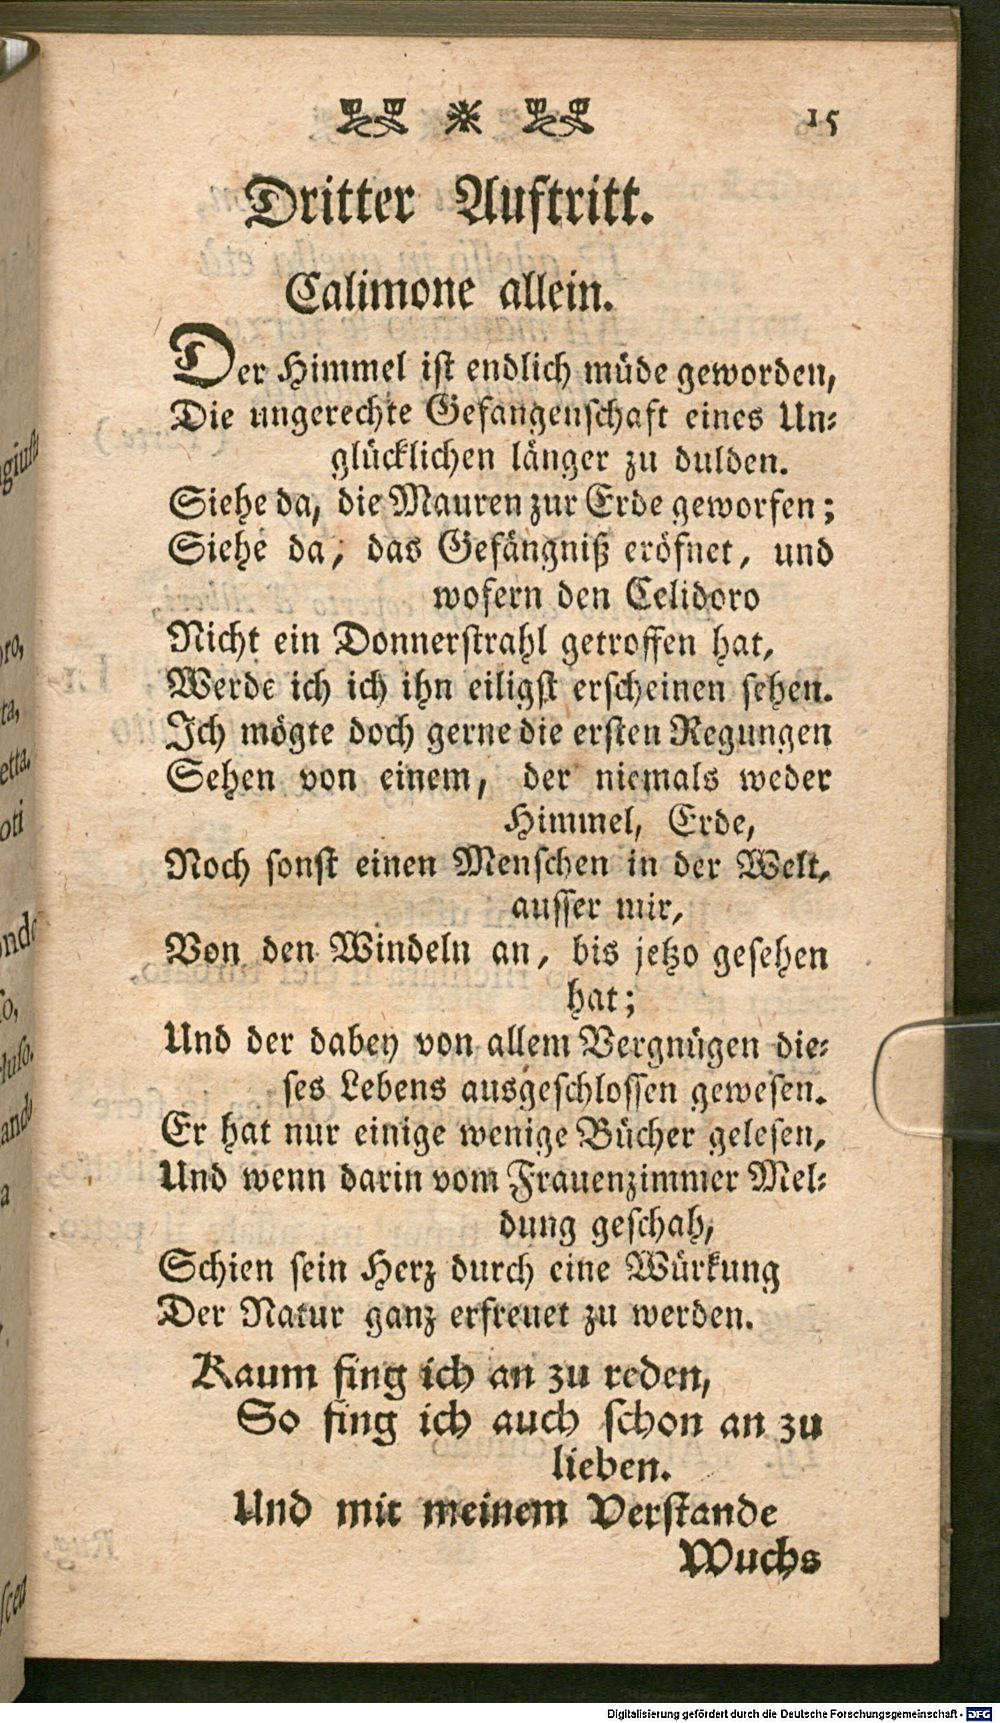 15
Dritter Auftritt.
Calimone allein.
Der Himmel ist endlich müde geworden,
Die ungerechte Gefangenschaft eines Un-
glücklichen länger zu dulden.
Siehe da, die Mauren zur Erde geworfen;
Siehe da, das Gefängniß eröfnet, und
wofern den Celidoro
Nicht ein Donnerstrahl getroffen hat,
Werde ich ich ihn eiligst erscheinen sehen.
Ich mögte doch gerne die ersten Regungen
Sehen von einem, der niemals weder
Himmel, Erde,
Noch sonst einen Menschen in der Welt,
ausser mir,
Von den Windeln an, bis jetzo gesehen
hat;
Und der dabey von allem Vergnügen die-
ses Lebens ausgeschlossen gewesen.
Er hat nur einige wenige Bücher gelesen,
Und wenn darin vom Frauenzimmer Mel-
dung geschah,
Schien sein Herz durch eine Würkung
Der Natur ganz erfreuet zu werden.
Kaum fing ich an zu reden,
So fing ich auch schon an zu
lieben.
Und mit meinem Verstande
Wuchs
Digitalisierung gefördert durch die Deutsche Forschungsgemeinschaft - DFG